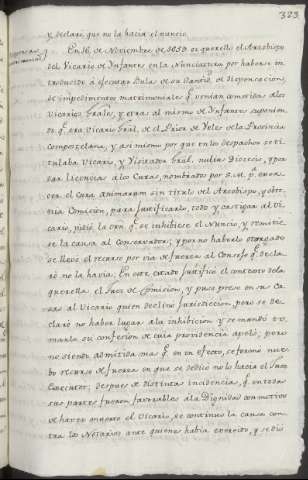 323
y declaró que no la hacia el nuncio
En 16 de Noviembre de 1659 se querelló el Arzobispo
del Vicario de Infantes en la Nunciatura por haberse in
troducido a efecutar Bula de su Santid de dispensacion
de impedimento matrimoniales q venian cometidas alos
Vicarios Grales, y otras al mismo de Infantes suponien
do q era Vicario Gral, de el Prior de Velés de la Provincia
Compostelana, y asi mismo por que en los despachos se ti
tulaba Vicario, y Visitador Gral. nulius Diocesis, y por
dar licencias alos Curas, nombrados por S. M. pa exer
cer el Cura animarum sin titulo del Arzobispo, y obte
nia Comision, para justificarlo todo y castigar al Vi
cario, pidió la orn qe se inhibiese el Nuncio, y remitie
se la causa al Conservador; y por no haberlo otorgado
se llevó el recurso por via de fuerza al Consejo q decla
ró no la havia; En este estado justificó el contexto dela
querella el Juez de Comision, y puso preso en su Ca
sa al Vicario quien declinó jurisdiccion, pero se de
claró no haber lugar ala inhibicion y se mandó to
marla su confesion de cuia providencia apeló; pero
no siendo admitida mas q en un efecto, se formó nue
bo recurso de fuerza en que se dedió no la hacia el Juez
Executor; despues de distintas incidencias, q en todas
sus partes fueron favorables ala Dignidad con motivo
de haver muerto el Vicario, se continuo la causa con
tra los Notarios ante quienes habia exercido, y se dió